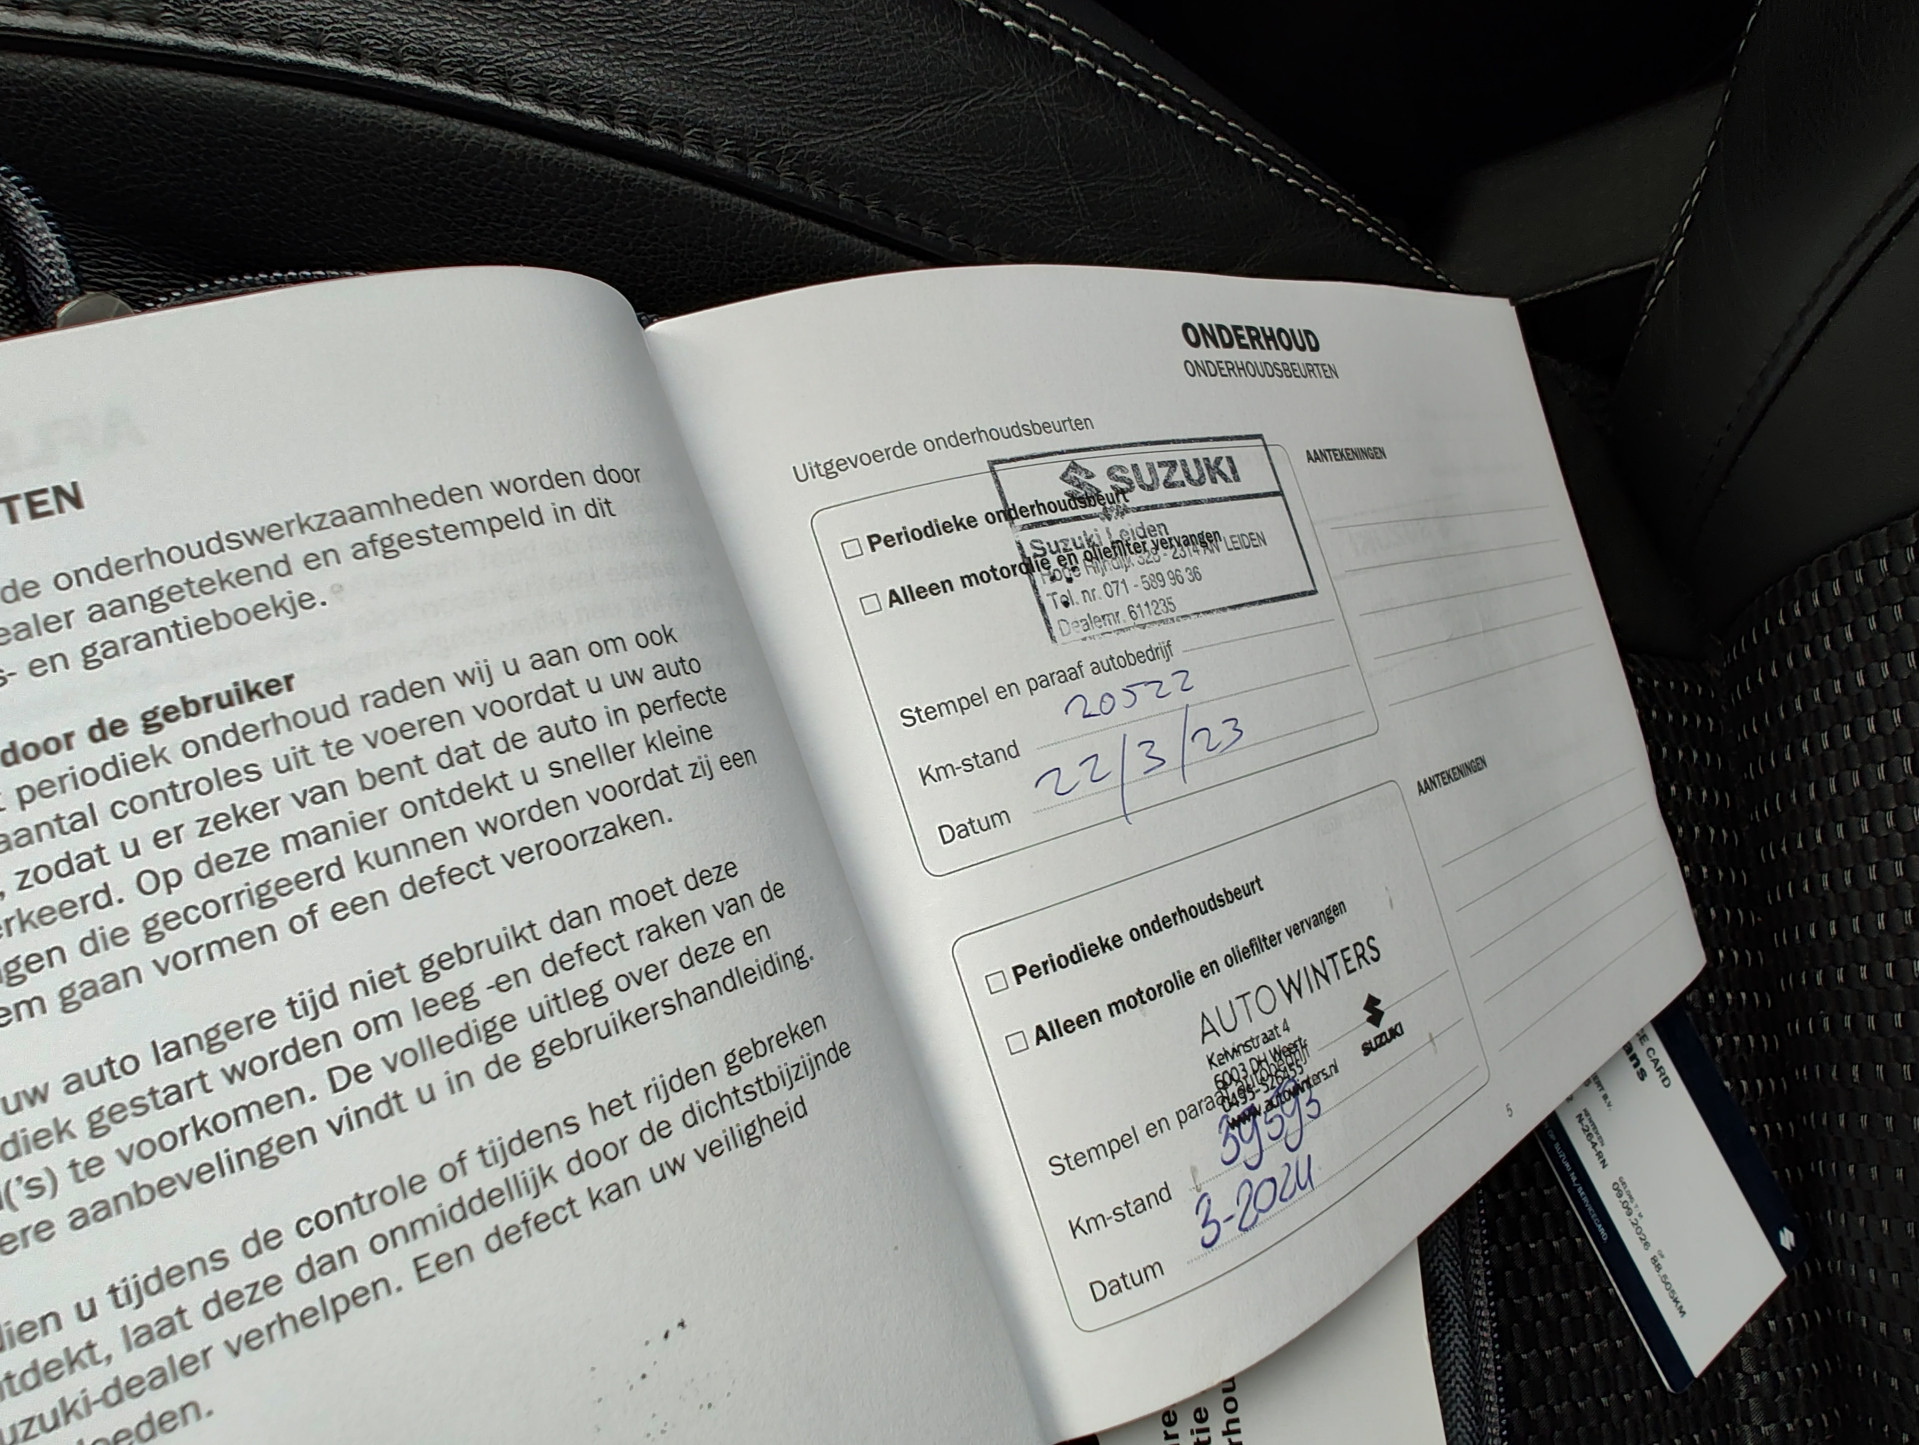 TEN
de onderhoudswerkzaamheden worden door
ealer aangetekend en afgestempeld in dit
s- en garantieboekje.
door de gebruiker
periodiek onderhoud raden wij u aan om ook
aantal controles uit te voeren voordat u uw auto
, zodat u er zeker van bent dat de auto in perfecte
erkeerd. Op deze manier ontdekt u sneller kleine
ngen die gecorrigeerd kunnen worden voordat zij een
em gaan vormen of een defect veroorzaken.
uw auto langere tijd niet gebruikt dan moet deze
diek gestart worden om leeg -en defect raken van de
('s) te voorkomen. De volledige uitleg over deze en
ere aanbevelingen vindt u in de gebruikershandleiding.
dien u tijdens de controle of tijdens het rijden gebreken
ntdekt, laat deze dan onmiddellijk door de dichtstbijzijnde
uzuki-dealer verhelpen. Een defect kan uw veiligheid
loeden.
ONDERHOUD
ONDERHOUDSBEURTEN
Uitgevoerde onderhoudsbeurten
SUZUKI
Periodieke onderhoudsbeurt
Suzuki Leiden
Alleen motorolie en oliefilter vervangen
2314 AN LEIDEN
Tel. nr. 071 - 589 96 36
Dealernr. 611235
Stempel en paraaf autobedrijf
Km-stand 20522
Datum 22/3/23
AANTEKENINGEN
Periodieke onderhoudsbeurt
Alleen motorolie en oliefilter vervangen
AUTOWINTERS
Kelvinstraat 4
6003 DH Weert
www.autowinters.nl
SUZUKI
Stempel en paraaf autobedrijf
Km-stand 39593
Datum 3-2024
AANTEKENINGEN
5
CE CARD
KENTEKEN
N-264-RN
09.09.2026 88.505KM